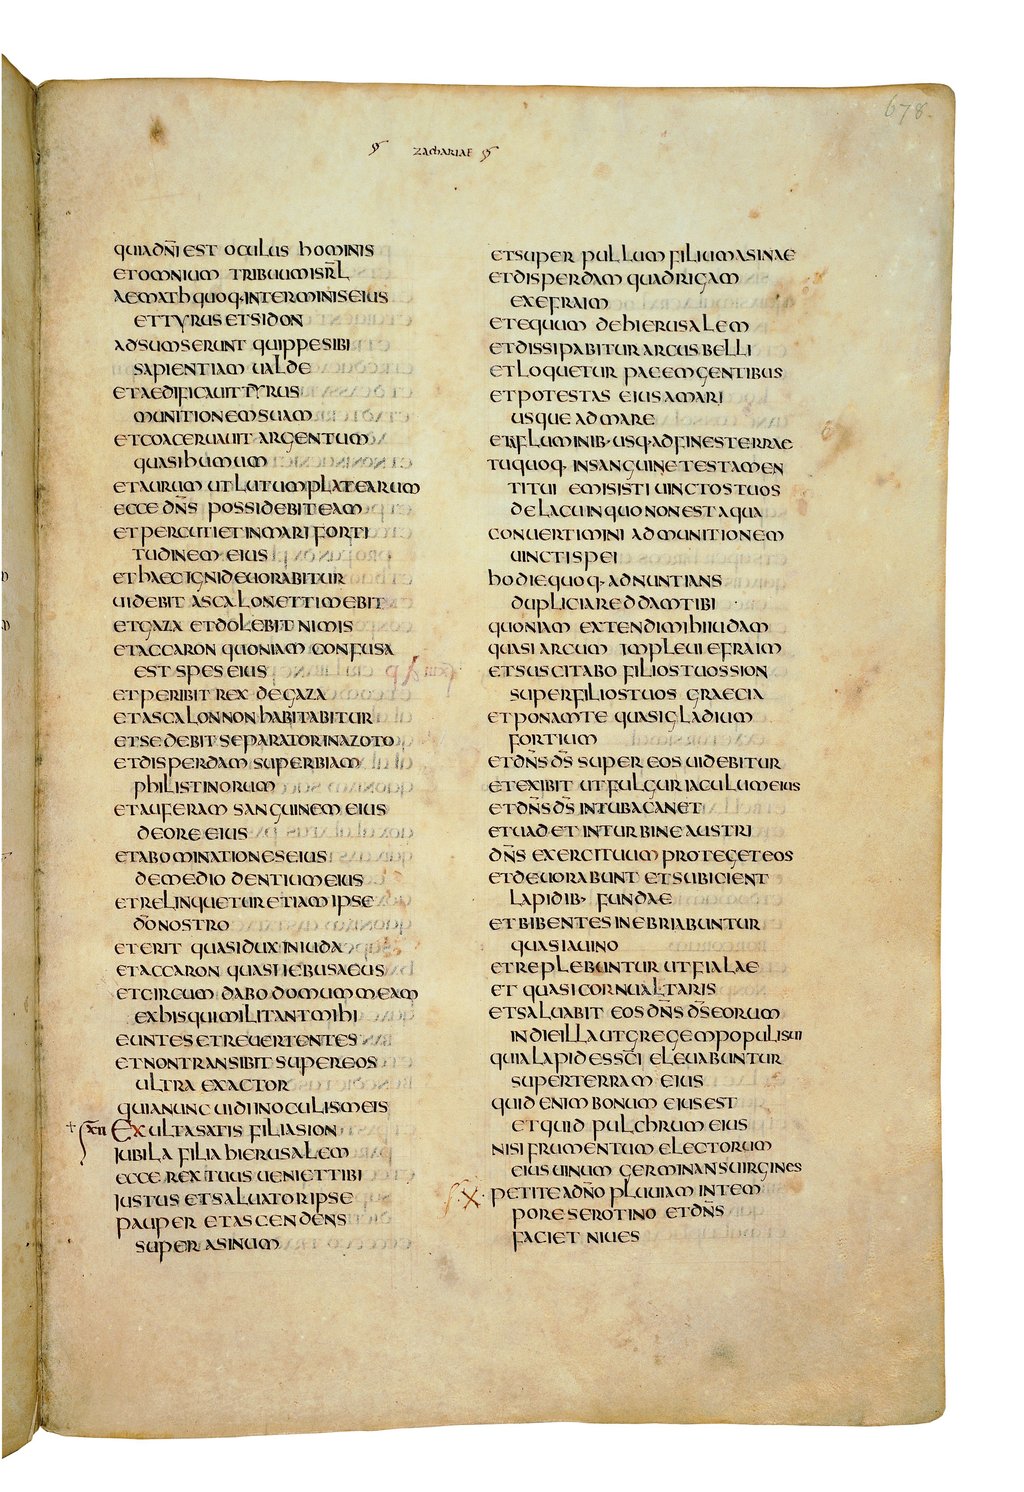 678.
ZACHARIAE
QUIADN̄I EST OCULUS HOMINIS
ETOMNIUM TRIBUUMISRL̄
AEMATHQUOQ·INTERMINISEIUS
ETTYRUSETSIDON
ADSUMSERUNT QUIPPESIBI
SAPIENTIAM UALDE
ETAEDIFICAUIT TYRUS
MUNITIONEMSUAM
ETCOACERUAUIT ARGENTUM
QUASIHUMUM
ETAURUM UTLUTUMPLATEARUM
ECCE DN̄S POSSIDEBITEAM
ETPERCUTIETINMARI FORTI
TUDINEM EIUS
ETHAECIGNIDEUORABITUR
UIDEBIT ASCALONETTIMEBIT
ETGAZA ETDOLEBIT NIMIS
ETACCARON QUONIAM CONFUSA
EST SPES EIUS
ETPERIBIT REX DEGAZA
ETASCALONNON HABITABITUR
ETSEDEBIT SEPARATORINAZOTO
ETDISPERDAM SUPERBIAM
PHILISTINORUM
ETAUFERAM SANGUINEM EIUS
DEORE EIUS
ETABOMINATIONESEIUS
DEMEDIO DENTIUMEIUS
ETRELINQUETURETIAMIPSE
DŌNOSTRO
ETERIT QUASIDUXINIUDA
ETACCARON QUASIIEBUSAEUS
ETCIRCUM DABO DOMUMMEAM
EXHISQUIMILITANTMIHI
EUNTESETREUERTENTES
ETNONTRANSIBITSUPEREOS
ULTRA EXACTOR
QUIANUNC UIDIINOCULISMEIS
EXULTASATIS FILIASION
IUBILA FILIA HIERUSALEM
ECCE REX TUUS UENIETTIBI
IUSTUS ETSALUATORIPSE
PAUPER ETASCENDENS
SUPER ASINUM
ETSUPER PULLUM FILIUMASINAE
ETDISPERDAM QUADRIGAM
EXEFRAIM
ETEQUUM DEHIERUSALEM
ETDISSIPABITURARCUSBELLI
ETLOQUETUR PACEMGENTIBUS
ETPOTESTAS EIUSAMARI
USQUE ADMARE
ETAFLUMINIB·USQ·ADFINESTERRAE
TUQUOQ· INSANGUINETESTAMEN
TITUI EMISISTI UINCTOSTUOS
DELACUINQUONONESTAQUA
CONUERTIMINI ADMUNITIONEM
UINCTISPEI
HODIEQUOQ·ADNUNTIANS
DUPLICIAREDDAMTIBI
QUONIAM EXTENDIMIHIIUDAM
QUASI ARCUM IMPLEUI EFRAIM
ETSUSCITABO FILIOSTUOSSION
SUPERFILIOSTUOS GRAECIA
ETPONAMTE QUASIGLADIUM
FORTIUM
ETDN̄S DS̄ SUPER EOS UIDEBITUR
ETEXIBIT UTFULGURIACULUMEIUS
ETDN̄S DS̄ INTUBACANET
ETUADET INTURBINEAUSTRI
DN̄S EXERCITUUM PROTEGETEOS
ETDEUORABUNT ETSUBICIENT
LAPIDIB· FUNDAE
ETBIBENTESINEBRIABUNTUR
QUASIAUINO
ETREPLEBUNTUR UTFIALAE
ET QUASICORNUALTARIS
ETSALUABIT EOS DN̄S DS̄EORUM
INDIEILLAUTGREGEMPOPULISUI
QUIALAPIDESSC̄I ELEUABUNTUR
SUPERTERRAM EIUS
QUID ENIM BONUM EIUSEST
ETQUID PULCHRUM EIUS
NISI FRUMENTUM ELECTORUM
EIUSUINUM GERMINANSUIRGINES
PETITEADN̄O PLUUIAM INTEM
PORE SEROTINO ETDN̄S
FACIET NIUES